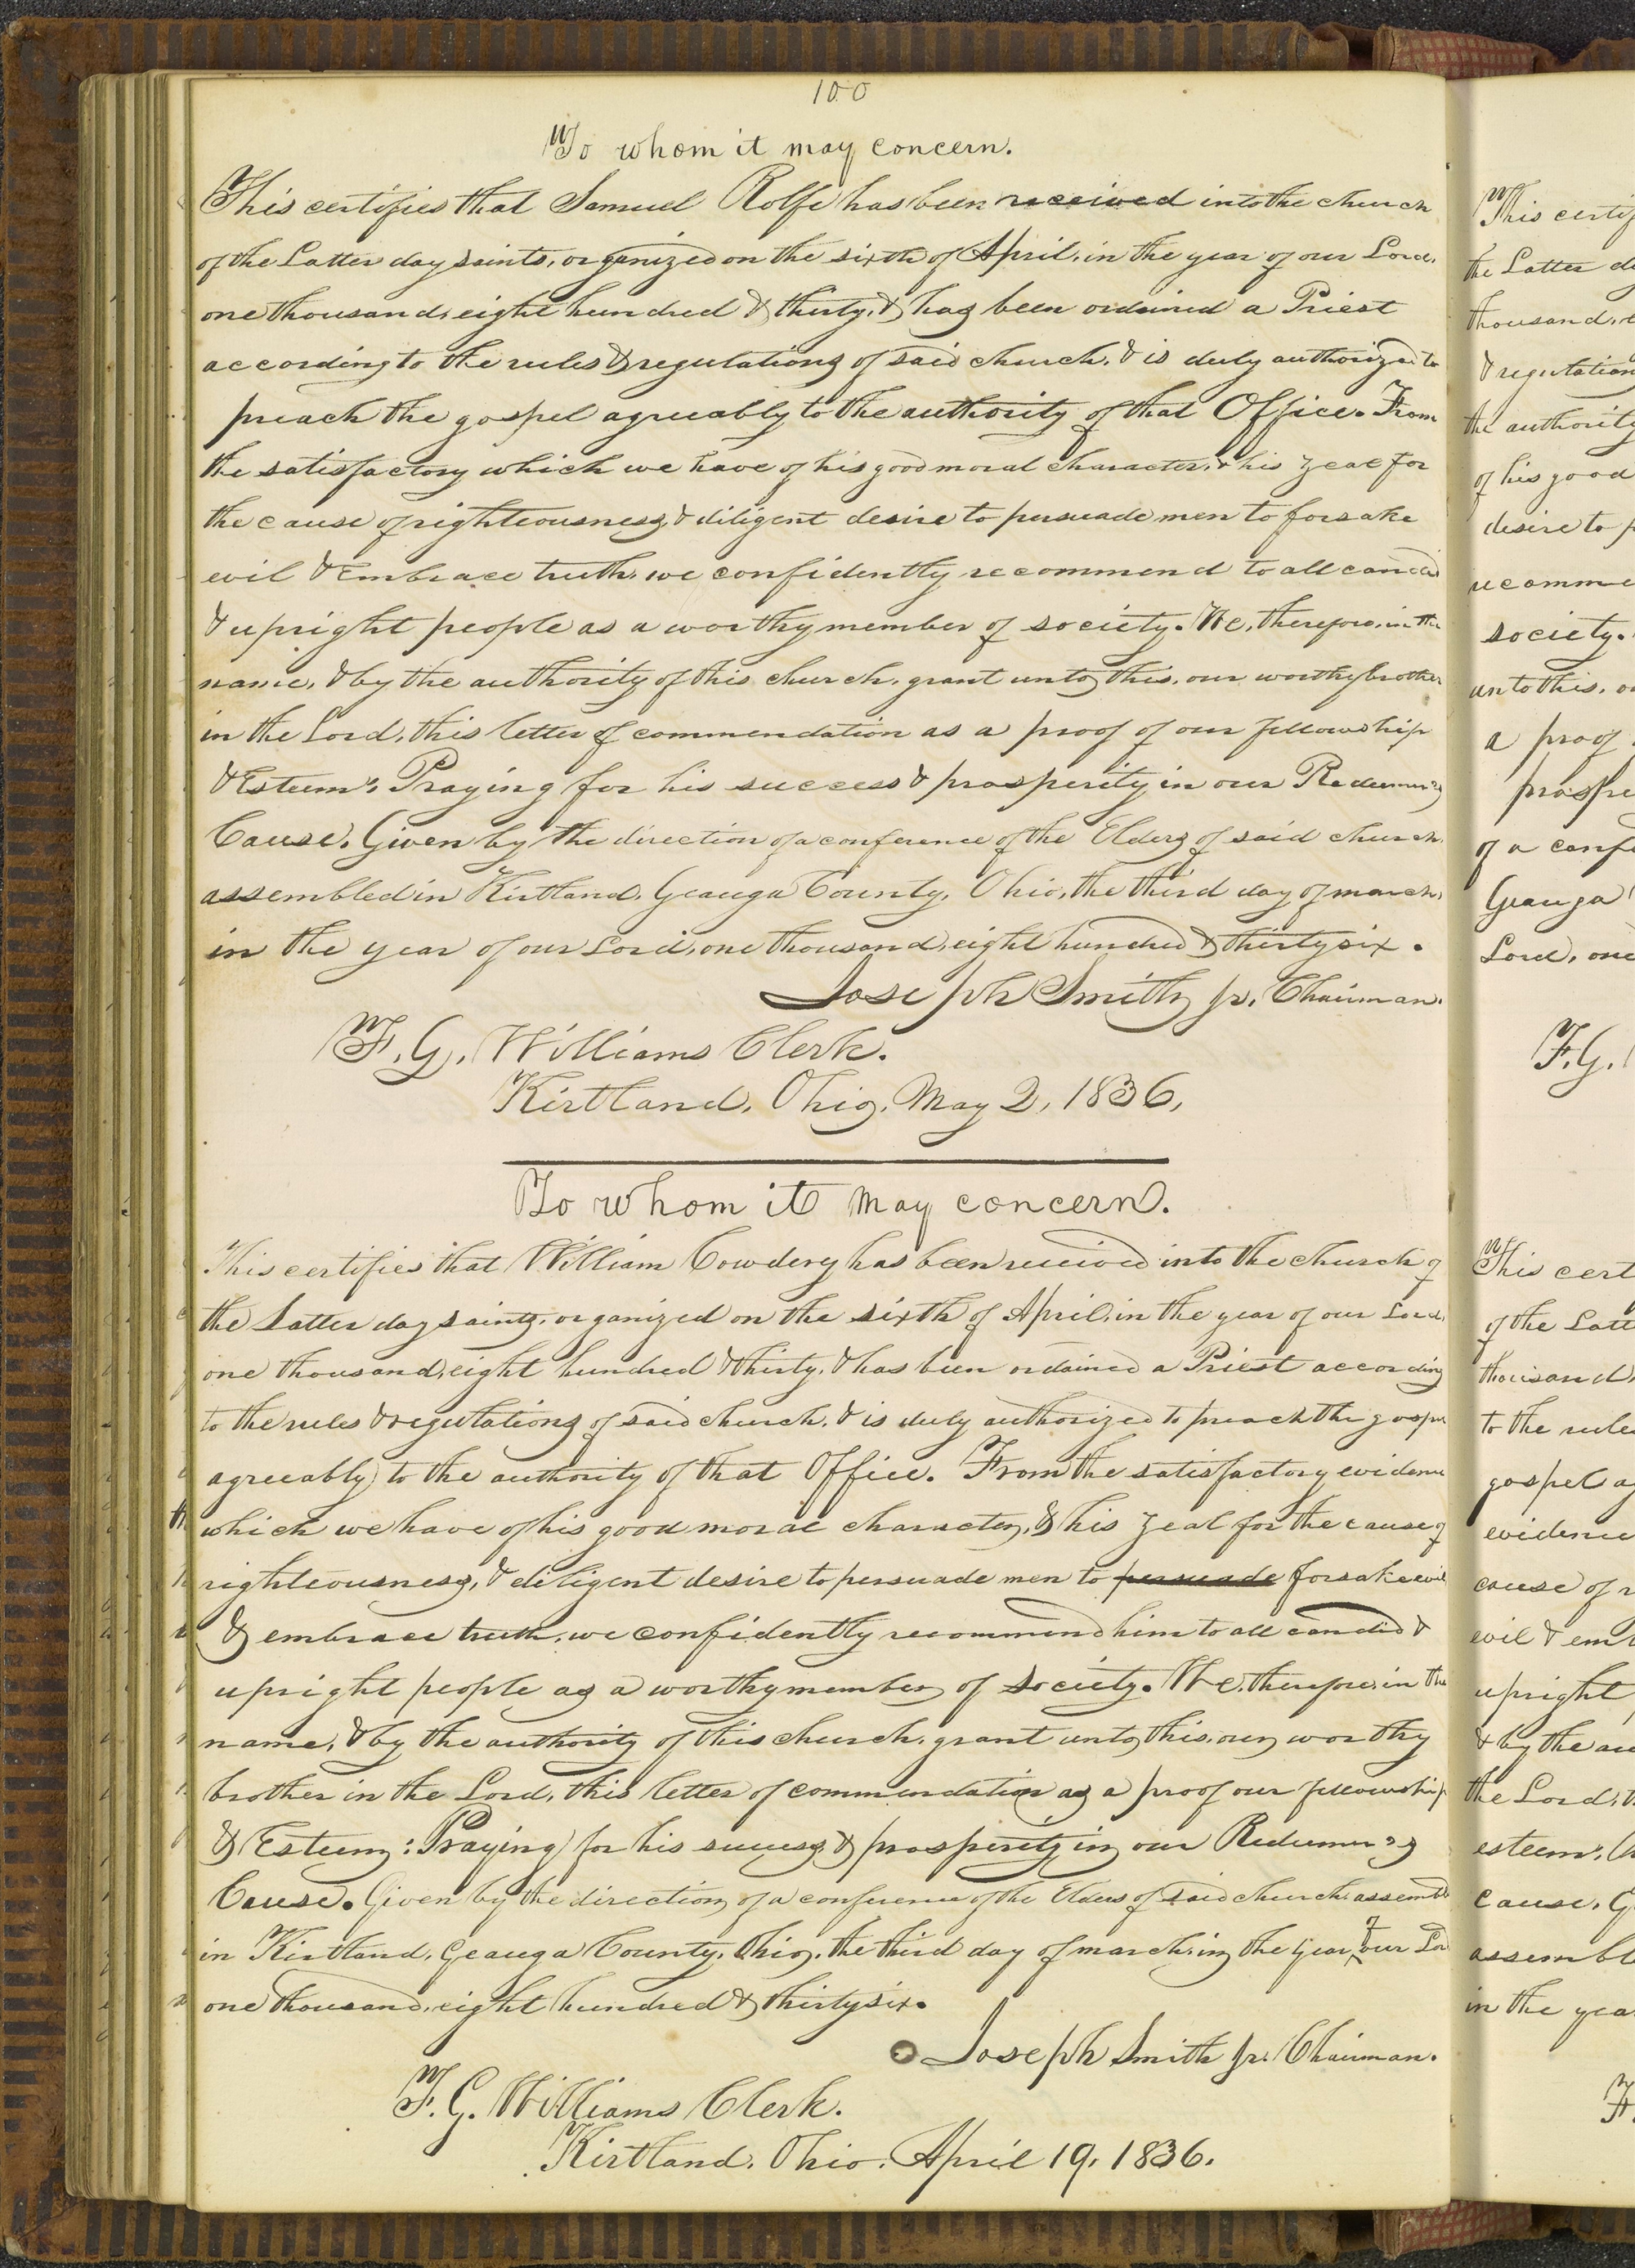 100
To whom it may concern.
This certifies that Samuel Rolfe has been received into the church
of the Latter day saints, organized on the sixth of April, in the year of our Lord,
one thousand, eight hundred & thirty, & has been ordained a Priest
according to the rules & regulations of said church, & is duly authorized to
preach the gospel agreeably to the authority of that Office. From
the satisfactory which we have of his good moral character, & his zeal for
the cause of righteousness, & diligent desire to persuade men to forsake
evil & embrace truth, we confidently recommend to all candid
& upright people as a worthy member of society. We, therefore, in the
name, & by the authority of this church, grant unto this, our worthy brother
in the Lord, this letter of commendation as a proof of our fellowship
& Esteem: Praying for his success & prosperity in our Redeemer's
Cause. Given by the direction of a conference of the Elders of said church,
assembled in Kirtland, Geauga County, Ohio, the third day of march,
in the year of our Lord, one thousand, eight hundred & thirty six.
Joseph Smith jr. Chairman.
F. G. Williams Clerk.
Kirtland, Ohio, May 2, 1836,
To whom it may concern.
This certifies that William Cowdery has been received into the church of
the Latter day saints, organized on the sixth of April, in the year of our Lord,
one thousand, eight hundred & thirty, & has been ordained a Priest according
to the rules & regulations of said church, & is duly authorized to preach the gospel
agreeably to the authority of that Office. From the satisfactory evidence
which we have of his good moral character, & his zeal for the cause of
righteousness, & diligent desire to persuade men to persuade forsake evil
& embrace truth, we confidently recommend him to all candid &
upright people as a worthy member of society. We, therefore, in the
name, & by the authority of this church, grant unto this, our worthy
brother in the Lord, this letter of commendation as a proof our fellowship
& Esteem: Praying for his success & prosperity in our Redeemer's
Cause. Given by the direction of a conference of the Elders of said church assembl
in Kirtland, Geauga County, Ohio, the third day of march, in the year of our Lord
one thousand, eight hundred & thirty six.
Joseph Smith jr. Chairman.
F. G. Williams Clerk.
Kirtland, Ohio, April 19, 1836.
This certif
the Latter d
thousand, e
& regulation
the authority
of his good
desire to p
recomme
society.
unto this, o
a proof
prospe
of a confe
Geauga
Lord, one
F.G.
This cert
of the Latt
thousand,
to the rule
gospel ag
evidence
cause of r
evil & em
upright
& by the au
the Lord, t
esteem,
cause, G
assembl
in the yea
F.